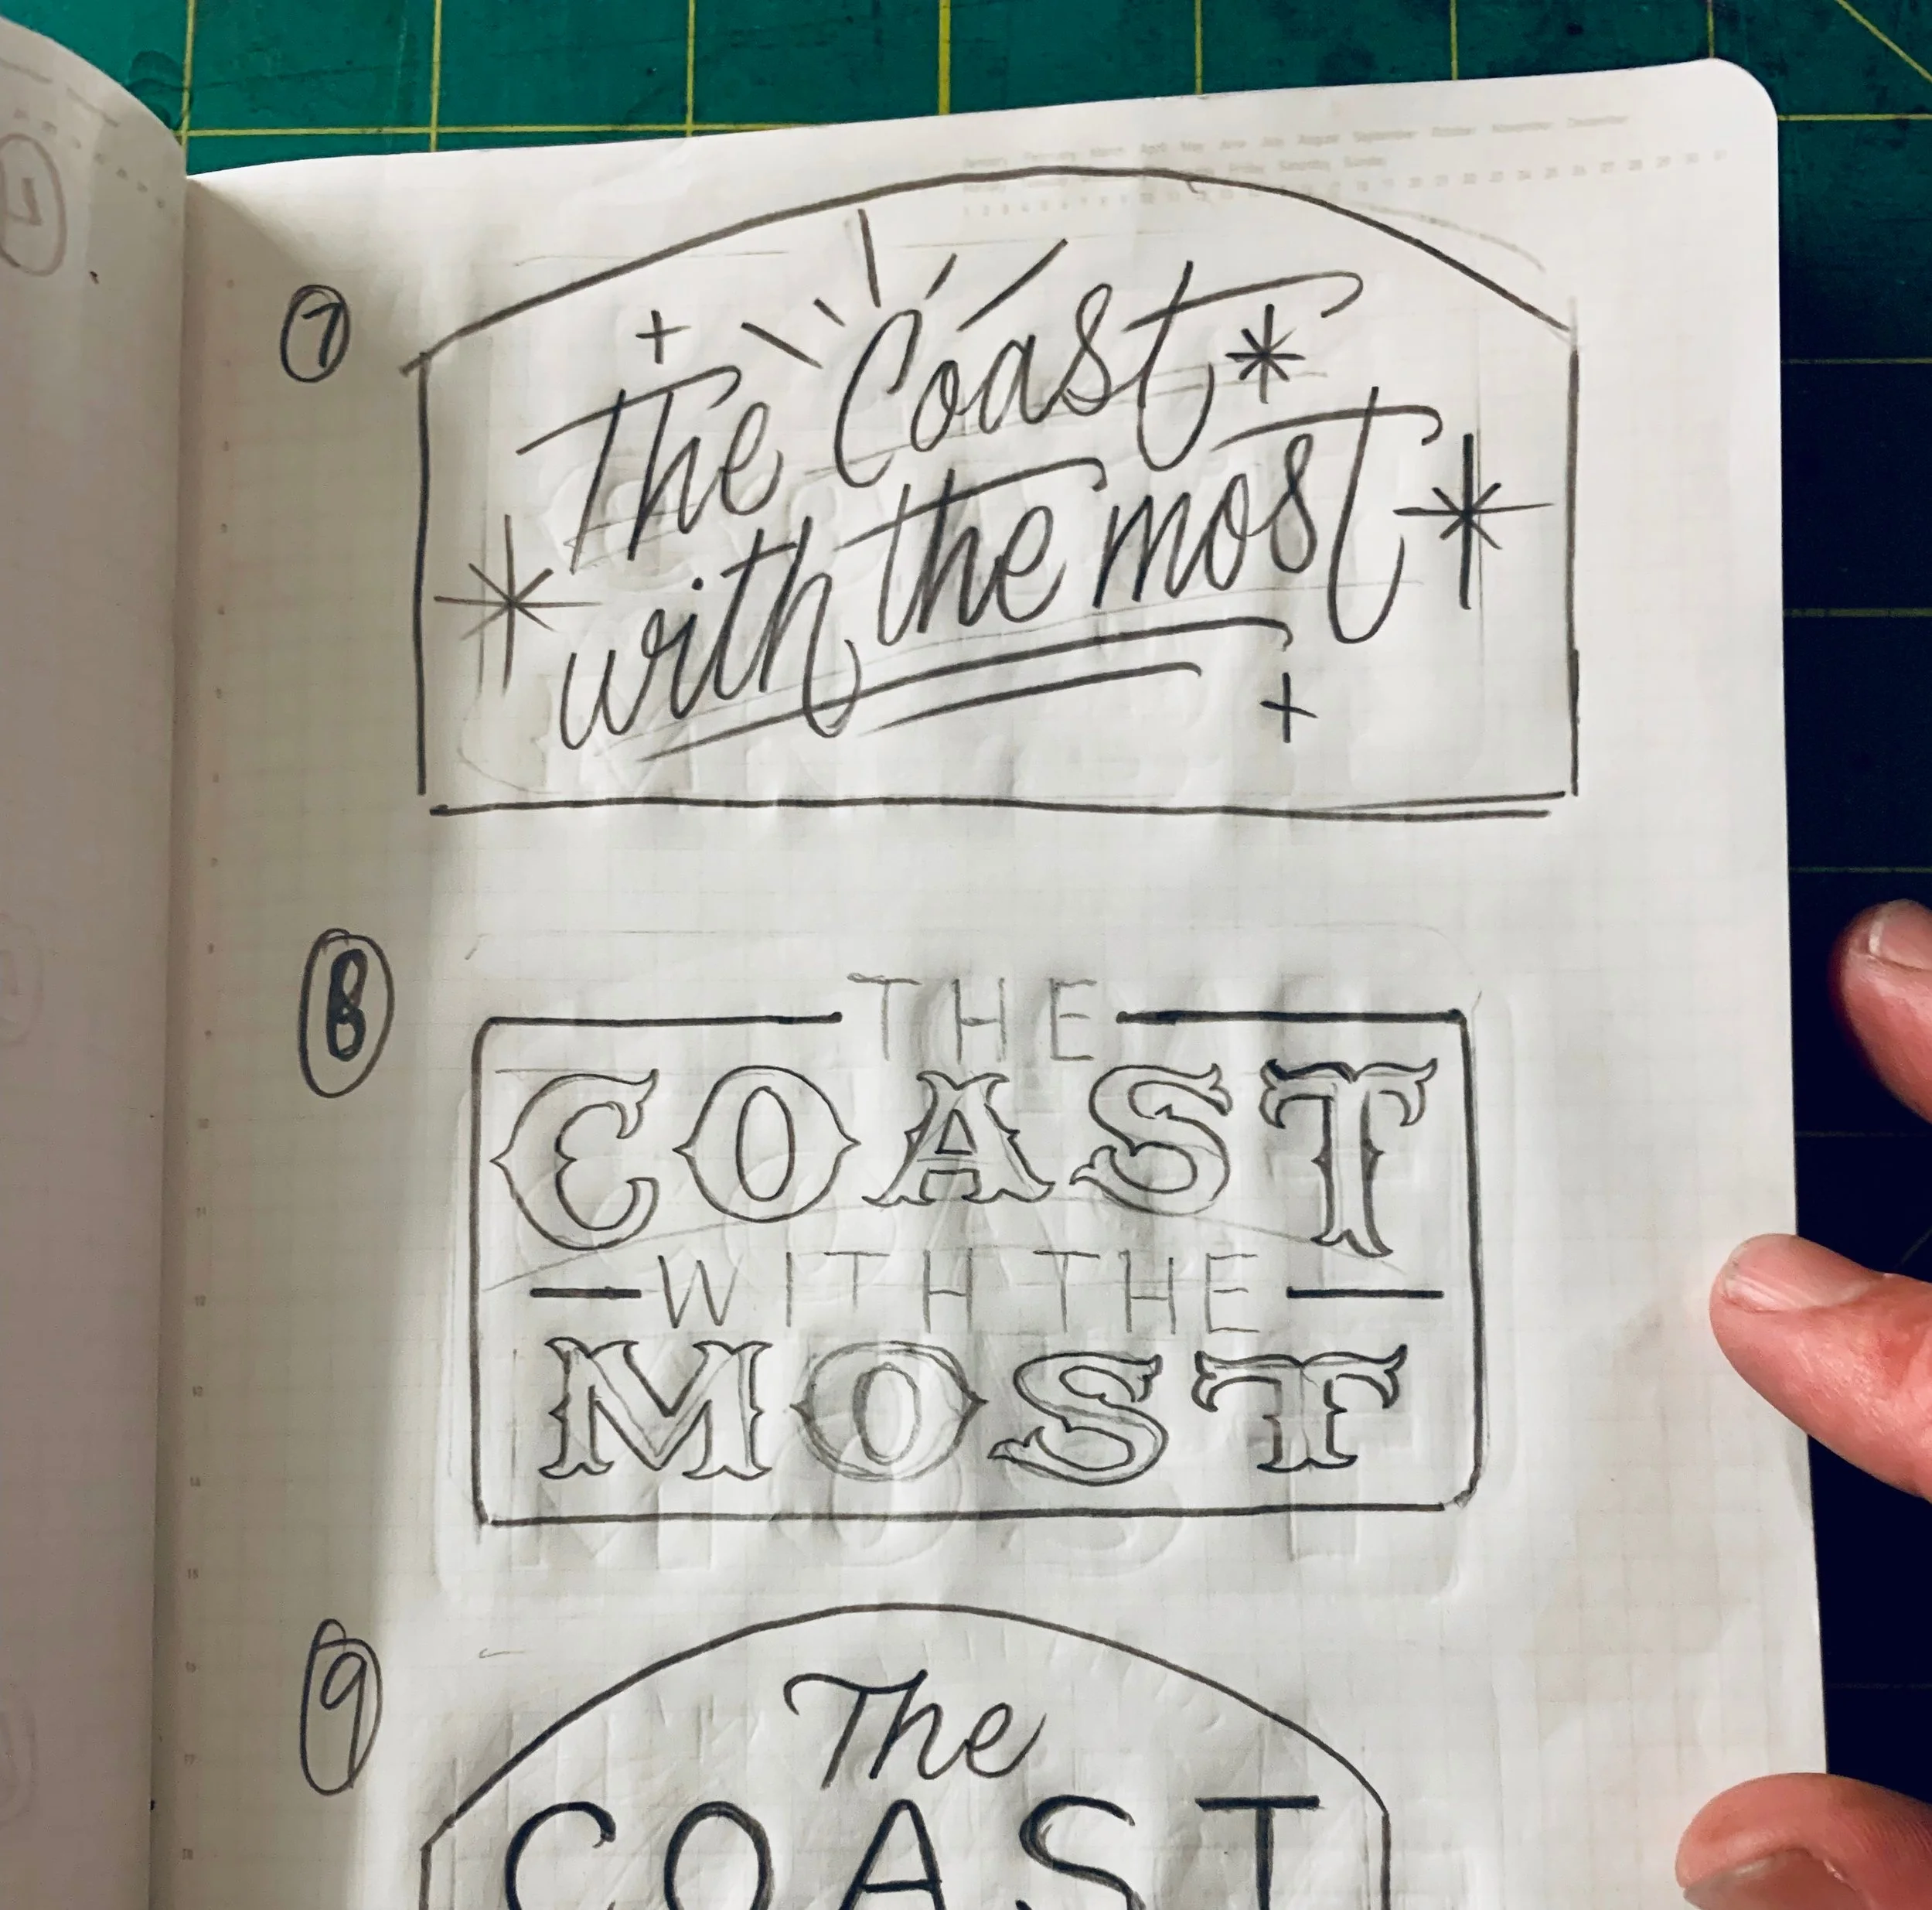 7
The Coast
with the most
8
THE
COAST
WITH THE
MOST
9
The
COAST